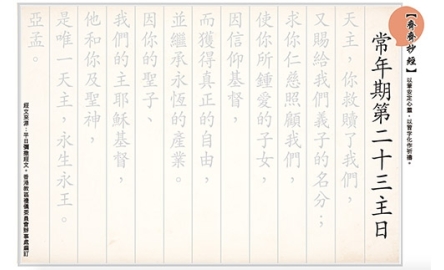 【齊齊抄經】
以筆安定心靈,以習字化作祈禱。
常年期第二十三主日
天主,你救贖了我們,
又賜給我們義子的名分;
求你仁慈照顧我們,
使你所鍾愛的子女,
因信仰基督,
而獲得真正的自由,
並繼承永恆的產業。
因你的聖子、
我們的主耶穌基督,
他和你及聖神,
是唯一天主,永生永王。
亞孟。
經文來源:平日彌撒經文。香港教區禮儀委員會辦事處編訂